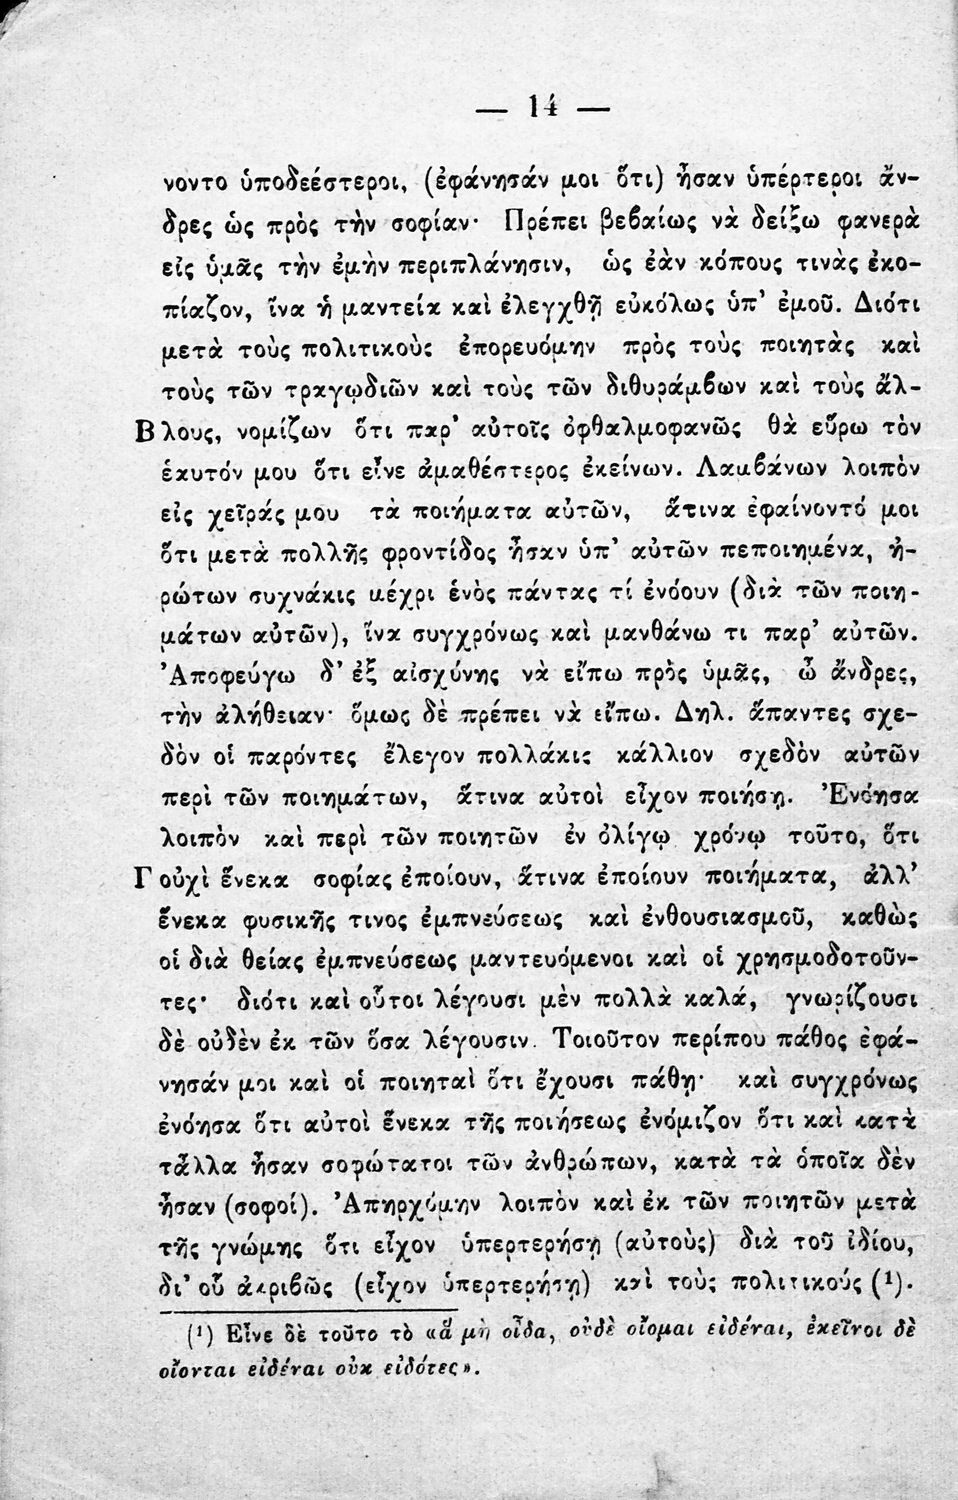 — 14 —
νοντο ὑποδεέστεροι, (ἐφάνησάν μοι ὅτι) ἦσαν ὑπέρτεροι ἄν-
δρες ὡς πρὸς τὴν σοφίαν· Πρέπει βεβαίως νὰ δείξω φανερὰ
εἰς ὑμᾶς τὴν ἐμὴν περιπλάνησιν, ὡς ἐὰν κόπους τινὰς ἐκο-
πίαζον, ἵνα ἡ μαντεία καὶ ἐλεγχθῇ εὐκόλως ὑπ’ ἐμοῦ. Διότι
μετὰ τοὺς πολιτικοὺς ἐπορευόμην πρὸς τοὺς ποιητὰς καὶ
τοὺς τῶν τραγῳδιῶν καὶ τοὺς τῶν διθυράμβων καὶ τοὺς ἄλ-
Β λους, νομίζων ὅτι παρ’ αὐτοῖς ὀφθαλμοφανῶς θὰ εὕρω τὸν
ἑαυτόν μου ὅτι εἶνε ἀμαθέστερος ἐκείνων. Λαμβάνων λοιπὸν
εἰς χεῖράς μου τὰ ποιήματα αὐτῶν, ἅτινα ἐφαίνοντό μοι
ὅτι μετὰ πολλῆς φροντίδος ἦσαν ὑπ’ αὐτῶν πεποιημένα, ἠ-
ρώτων συχνάκις μέχρι ἑνὸς πάντας τί ἐνόουν (διὰ τῶν ποιη-
μάτων αὐτῶν), ἵνα συγχρόνως καὶ μανθάνω τι παρ’ αὐτῶν.
Ἀποφεύγω δ’ ἐξ αἰσχύνης νὰ εἴπω πρὸς ὑμᾶς, ὦ ἄνδρες,
τὴν ἀλήθειαν· ὅμως δὲ πρέπει νὰ εἴπω. Δηλ. ἅπαντες σχε-
δὸν οἱ παρόντες ἔλεγον πολλάκις κάλλιον σχεδὸν αὐτῶν
περὶ τῶν ποιημάτων, ἅτινα αὐτοὶ εἶχον ποιήσῃ. Ἐνόησα
λοιπὸν καὶ περὶ τῶν ποιητῶν ἐν ὀλίγῳ χρόνῳ τοῦτο, ὅτι
Γ οὐχὶ ἕνεκα σοφίας ἐποίουν, ἅτινα ἐποίουν ποιήματα, ἀλλ’
ἕνεκα φυσικῆς τινος ἐμπνεύσεως καὶ ἐνθουσιασμοῦ, καθὼς
οἱ διὰ θείας ἐμπνεύσεως μαντευόμενοι καὶ οἱ χρησμοδοτοῦν-
τες· διότι καὶ οὗτοι λέγουσι μὲν πολλὰ καλά, γνωρίζουσι
δὲ οὐδὲν ἐκ τῶν ὅσα λέγουσιν. Τοιοῦτον περίπου πάθος ἐφά-
νησάν μοι καὶ οἱ ποιηταὶ ὅτι ἔχουσι πάθῃ· καὶ συγχρόνως
ἐνόησα ὅτι αὐτοὶ ἕνεκα τῆς ποιήσεως ἐνόμιζον ὅτι καὶ κατὰ
τἆλλα ἦσαν σοφώτατοι τῶν ἀνθρώπων, κατὰ τὰ ὁποῖα δὲν
ἦσαν (σοφοί). Ἀπηρχόμην λοιπὸν καὶ ἐκ τῶν ποιητῶν μετὰ
τῆς γνώμης ὅτι εἶχον ὑπερτερήσῃ (αὐτοὺς) διὰ τοῦ ἰδίου,
δι’ οὗ ἀκριβῶς (εἶχον ὑπερτερήσῃ) καὶ τοὺς πολιτικούς (¹).
(¹) Εἶνε δὲ τοῦτο τὸ «ἃ μὴ οἶδα, οὐδὲ οἴομαι εἰδέναι, ἐκεῖνοι δὲ
οἴονται εἰδέναι οὐκ εἰδότες».